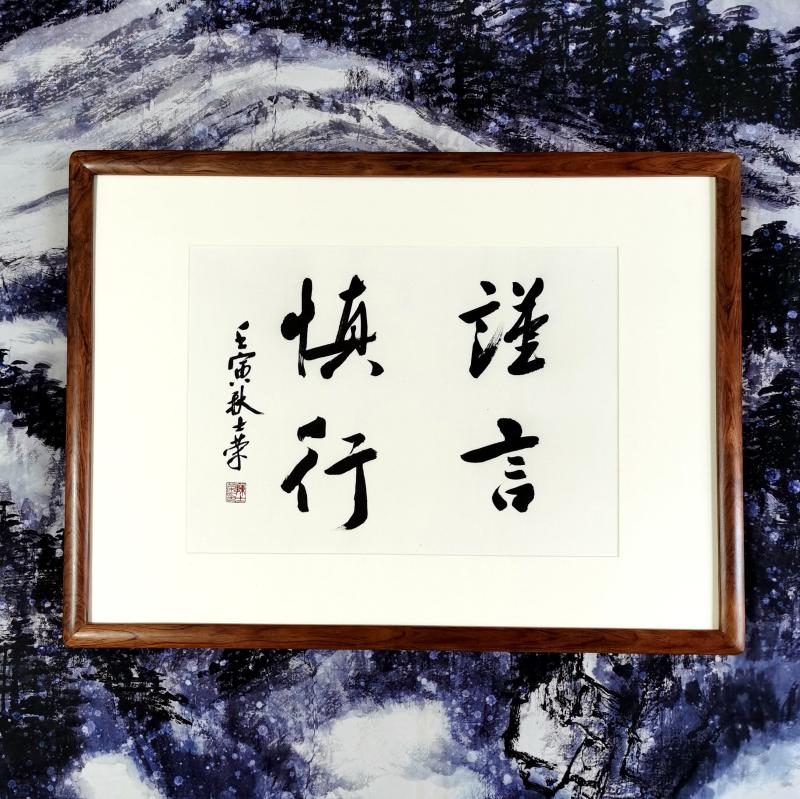 謹言
慎行
壬寅秋士荣